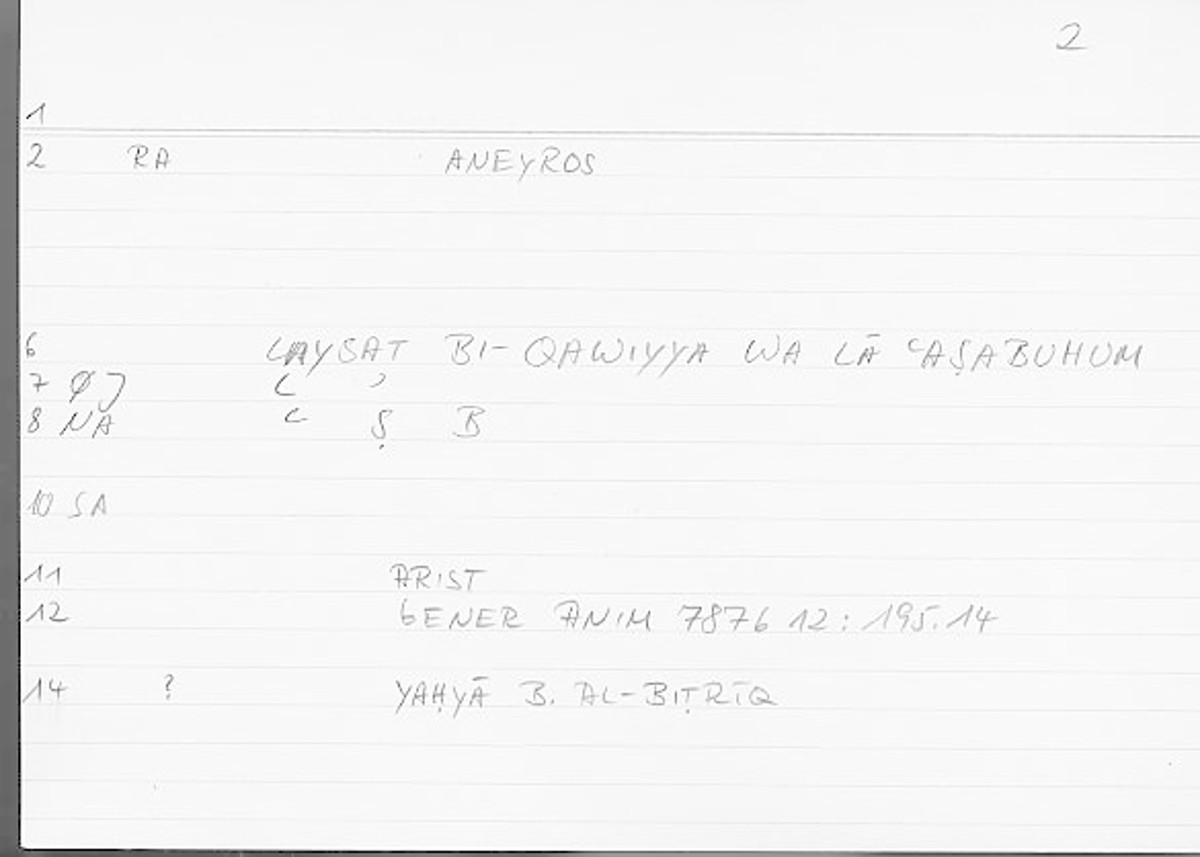 2
1
2 RA ANEYROS
6 LAYSAT BI-QAWIYYA WA LĀ ʿAṢABUHUM
7 Ø) ( ʾ
8 NA ʿ Ṣ B
10 SA
11 ARIST
12 GENER ANIM 787b 12 : 195.14
14 ? YAḤYĀ B. AL-BIṬRĪQ